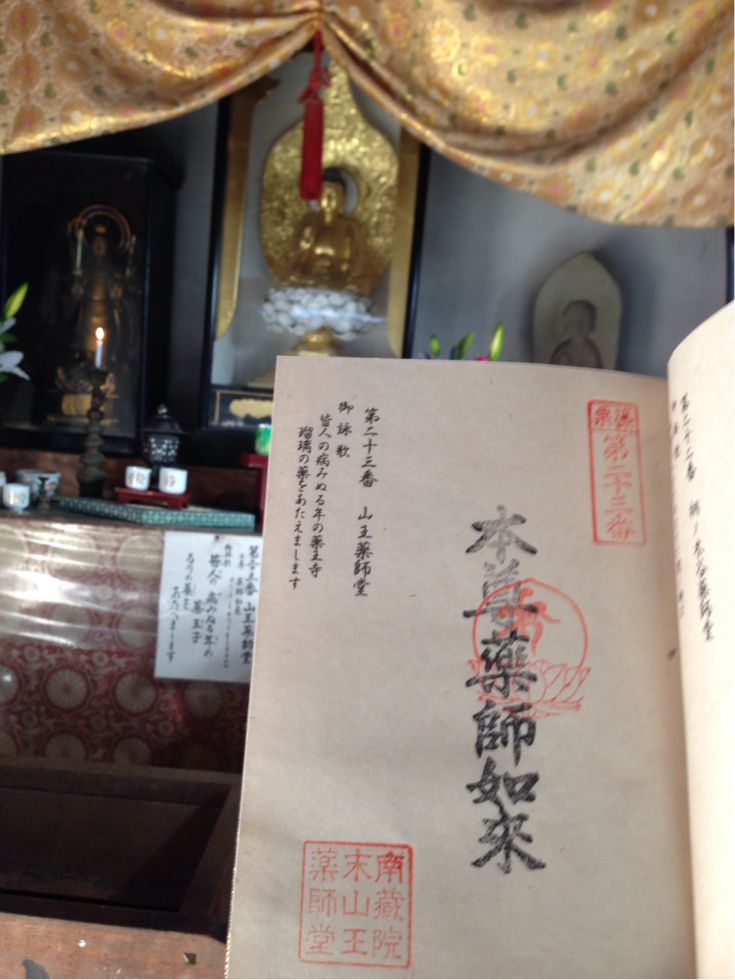 第二十二番 桐ノ木谷薬師堂
篠栗
第二十三番
本尊藥師如来
第二十三番 山王薬師堂
御詠歌
皆人の病みぬる年の薬王寺
瑠璃の薬をあたえまします
南蔵院
末山王
薬師堂
山王薬師堂
皆人の病みぬる年の
薬王子
るりの薬を
あたへまします